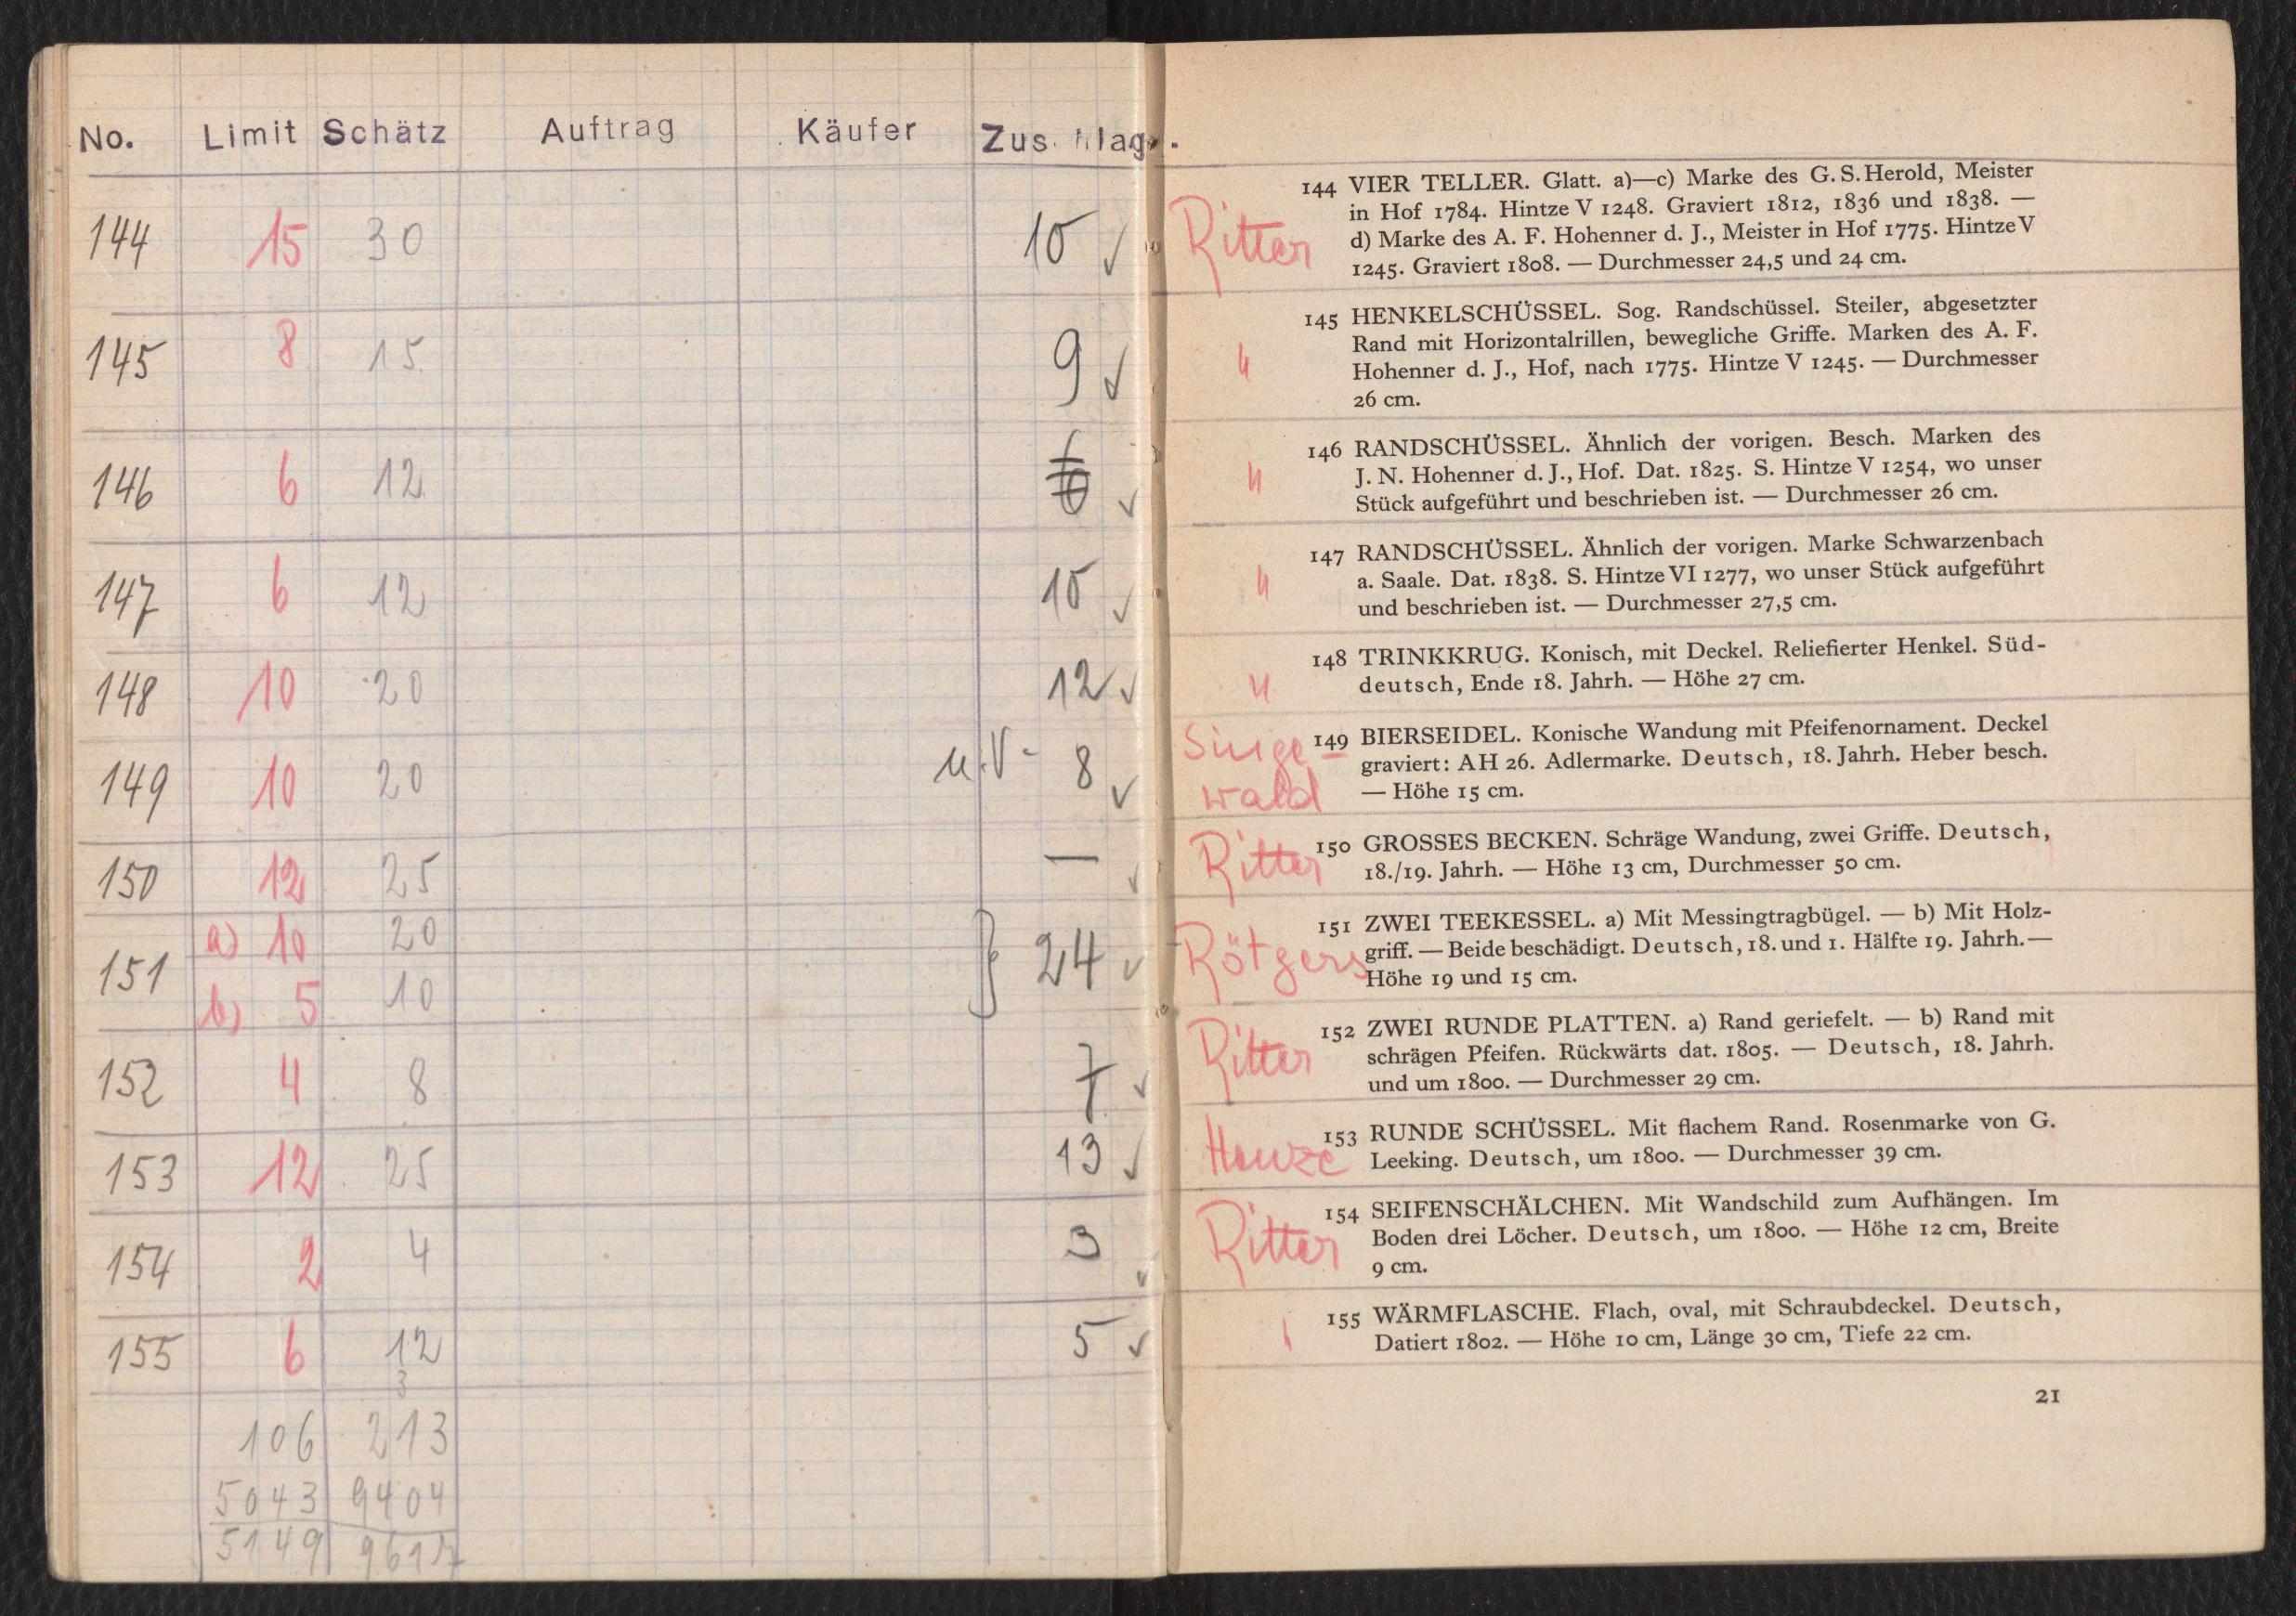 No. Limit Schätz Auftrag Käufer Zuschlag.
144 15 30 10 ✓
145 8 15 9 ✓
146 6 12 ✓
147 6 12 10 ✓
148 10 20 12 ✓
149 10 20 u.V- 8 ✓
150 12 25 — ✓
151 a) 10 20 } 24 ✓
b) 5 10
152 4 8 7 ✓
153 12 25 13 ✓
154 2 4 3 ✓
155 6 12 5 ✓
3
106 213
5043 9404
5149 9617
Ritter
144 VIER TELLER. Glatt. a)—c) Marke des G. S. Herold, Meister
in Hof 1784. Hintze V 1248. Graviert 1812, 1836 und 1838. —
d) Marke des A. F. Hohenner d. J., Meister in Hof 1775. Hintze V
1245. Graviert 1808. — Durchmesser 24,5 und 24 cm.
"
145 HENKELSCHÜSSEL. Sog. Randschüssel. Steiler, abgesetzter
Rand mit Horizontalrillen, bewegliche Griffe. Marken des A. F.
Hohenner d. J., Hof, nach 1775. Hintze V 1245. — Durchmesser
26 cm.
"
146 RANDSCHÜSSEL. Ähnlich der vorigen. Besch. Marken des
J. N. Hohenner d. J., Hof. Dat. 1825. S. Hintze V 1254, wo unser
Stück aufgeführt und beschrieben ist. — Durchmesser 26 cm.
"
147 RANDSCHÜSSEL. Ähnlich der vorigen. Marke Schwarzenbach
a. Saale. Dat. 1838. S. Hintze VI 1277, wo unser Stück aufgeführt
und beschrieben ist. — Durchmesser 27,5 cm.
"
148 TRINKKRUG. Konisch, mit Deckel. Reliefierter Henkel. Süd-
deutsch, Ende 18. Jahrh. — Höhe 27 cm.
Singe-
wald
149 BIERSEIDEL. Konische Wandung mit Pfeifenornament. Deckel
graviert: AH 26. Adlermarke. Deutsch, 18. Jahrh. Heber besch.
— Höhe 15 cm.
Ritter
150 GROSSES BECKEN. Schräge Wandung, zwei Griffe. Deutsch,
18./19. Jahrh. — Höhe 13 cm, Durchmesser 50 cm.
Rötgers
151 ZWEI TEEKESSEL. a) Mit Messingtragbügel. — b) Mit Holz-
griff. — Beide beschädigt. Deutsch, 18. und 1. Hälfte 19. Jahrh. —
Höhe 19 und 15 cm.
Ritter
152 ZWEI RUNDE PLATTEN. a) Rand geriefelt. — b) Rand mit
schrägen Pfeifen. Rückwärts dat. 1805. — Deutsch, 18. Jahrh.
und um 1800. — Durchmesser 29 cm.
153 RUNDE SCHÜSSEL. Mit flachem Rand. Rosenmarke von G.
Leeking. Deutsch, um 1800. — Durchmesser 39 cm.
Ritter
154 SEIFENSCHÄLCHEN. Mit Wandschild zum Aufhängen. Im
Boden drei Löcher. Deutsch, um 1800. — Höhe 12 cm, Breite
9 cm.
155 WÄRMFLASCHE. Flach, oval, mit Schraubdeckel. Deutsch,
Datiert 1802. — Höhe 10 cm, Länge 30 cm, Tiefe 22 cm.
21